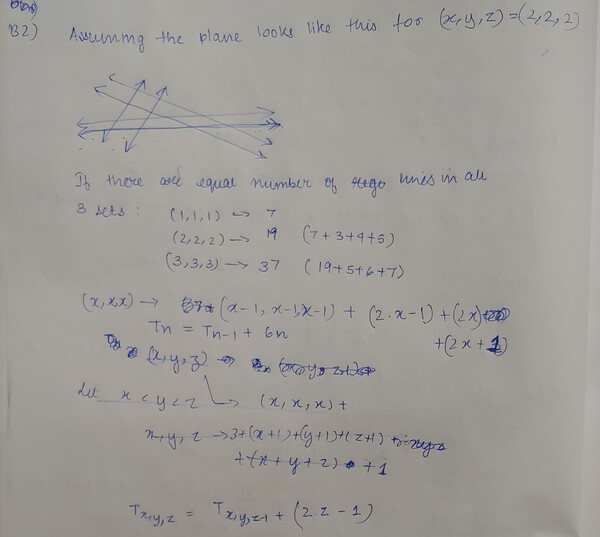 B2) Assuming the plane looks like this for (x,y,z)=(2,2,2)
If there are equal number of lines in all
3 sets : (1,1,1) → 7
(2,2,2) → 19 (7+3+4+5)
(3,3,3) → 37 (19+5+6+7)
(x,x,x) → (x-1, x-1, x-1) + (2.x-1) + (2x)
+(2x+1)
Tn = Tn-1 + 6n
(x,y,z) →
Let x < y < z → (x, x, x) +
x,y,z → 3+(x+1)+(y+1)+(z+1)
+(x+y+z) +1
Tx,y,z = Tx,y,z-1 + (2.z-1)